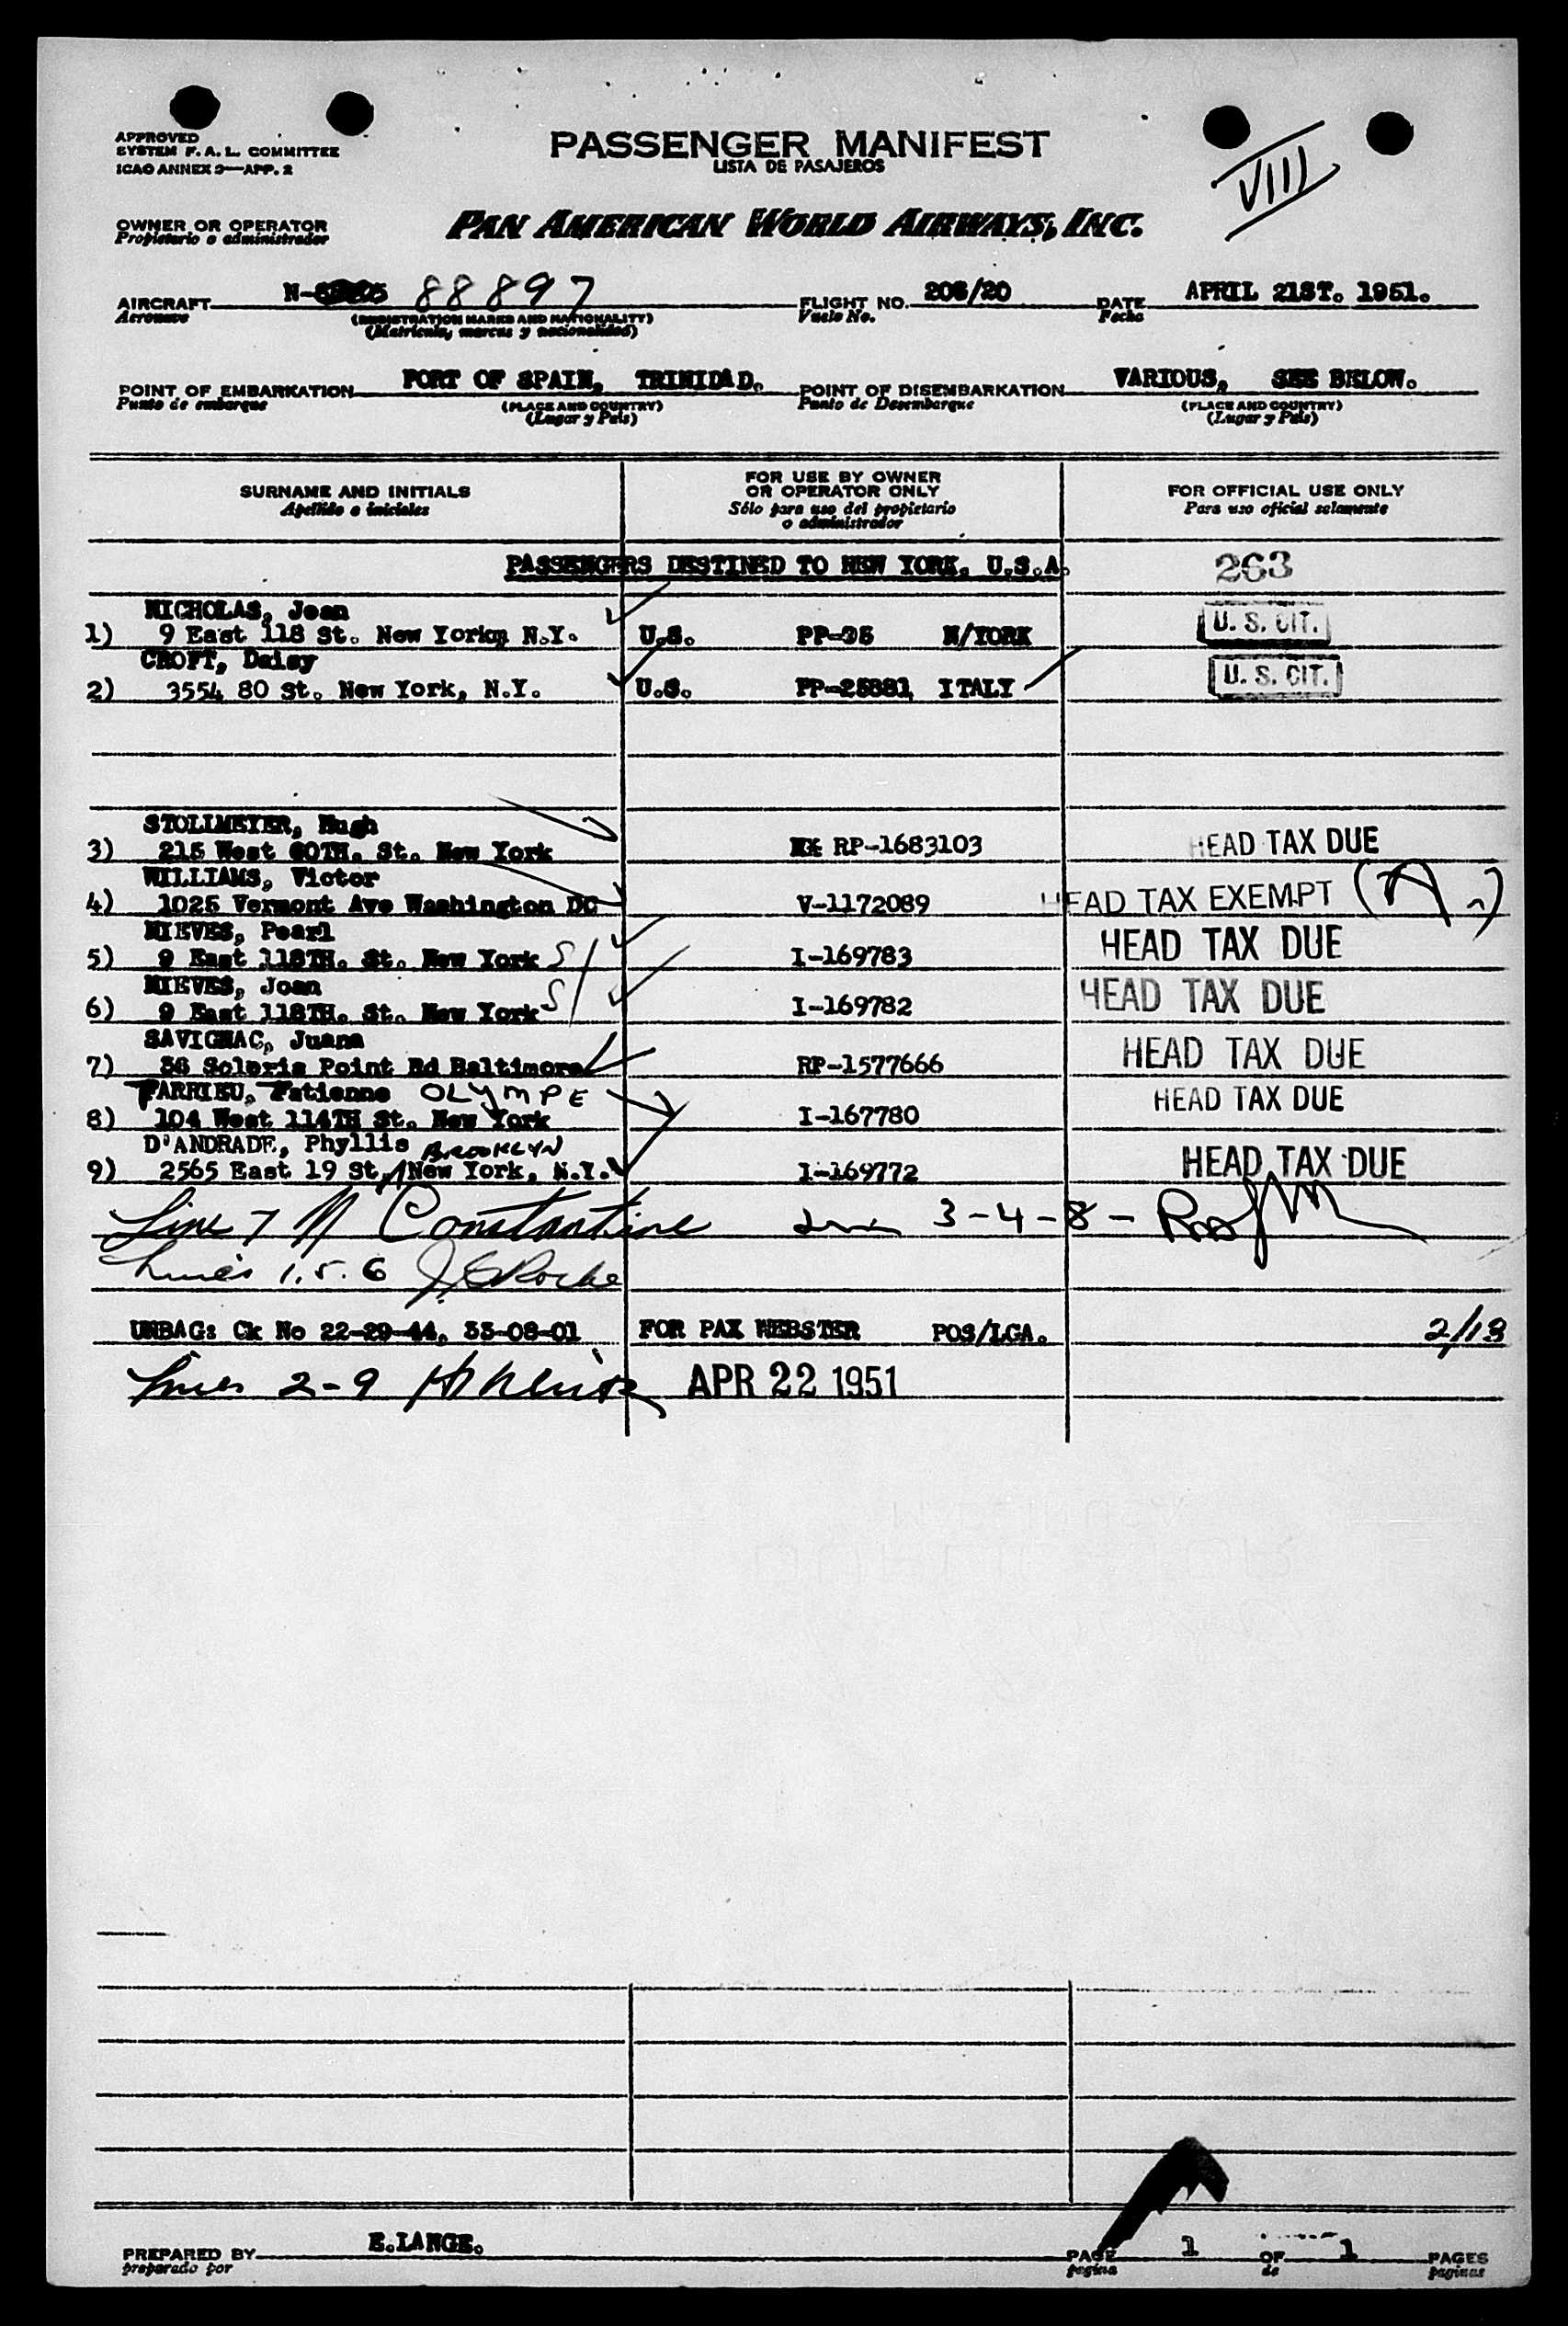 APPROVED
SYSTEM F. A. L. COMMITTEE
ICAO ANNEX 9—APP. 2
PASSENGER MANIFEST
LISTA DE PASAJEROS
VIII
OWNER OR OPERATOR
Propietario o administrador
PAN AMERICAN WORLD AIRWAYS, INC.
AIRCRAFT N- 88897 FLIGHT NO. 206/20 DATE APRIL 21ST. 1951.
Aeronave (REGISTRATION MARKS AND NATIONALITY) Vuelo No. Fecha
(Matrícula, marcas y nacionalidad)
POINT OF EMBARKATION PORT OF SPAIN, TRINIDAD. POINT OF DISEMBARKATION VARIOUS, SEE BELOW.
Punto de embarque (PLACE AND COUNTRY) Punto de Desembarque (PLACE AND COUNTRY)
(Lugar y País) (Lugar y País)
SURNAME AND INITIALS FOR USE BY OWNER OR OPERATOR ONLY FOR OFFICIAL USE ONLY
Apellido e iniciales Sólo para uso del propietario o administrador Para uso oficial solamente
PASSENGERS DESTINED TO NEW YORK. U.S.A. 263
NICHOLAS, Jean
1) 9 East 118 St. New York, N.Y. U.S. PP-35 N/YORK U. S. CIT.
CROFT, Daisy
2) 3554 80 St. New York, N.Y. U.S. PP-25881 ITALY U. S. CIT.
STOLLMEYER, Hugh
3) 215 West 60TH. St. New York RP-1683103 HEAD TAX DUE
WILLIAMS, Victor
4) 1025 Vermont Ave Washington DC V-1172089 HEAD TAX EXEMPT
NIEVES, Pearl
5) 9 East 118TH. St. New York S I-169783 HEAD TAX DUE
NIEVES, Joan
6) 9 East 118TH. St. New York S I-169782 HEAD TAX DUE
SAVIGNAC, Juana
7) 36 Point Rd Baltimore RP-1577666 HEAD TAX DUE
FARRIEU, Fatienne OLYMPE
8) 104 West 114TH St. New York I-167780 HEAD TAX DUE
D'ANDRADE, Phyllis BROOKLYN
9) 2565 East 19 St, New York, N.Y. I-169772 HEAD TAX DUE
Line 7 N Constantine 3-4-8-
Lines 1.5.6 J Roche
UNBAG: Ck No 22-29-44, 33-08-01 FOR PAX WEBSTER POS/LGA. 2/13
Lines 2-9 APR 22 1951
PREPARED BY E.LANGE. PAGE 1 OF 1 PAGES
preparado por pagina de paginas